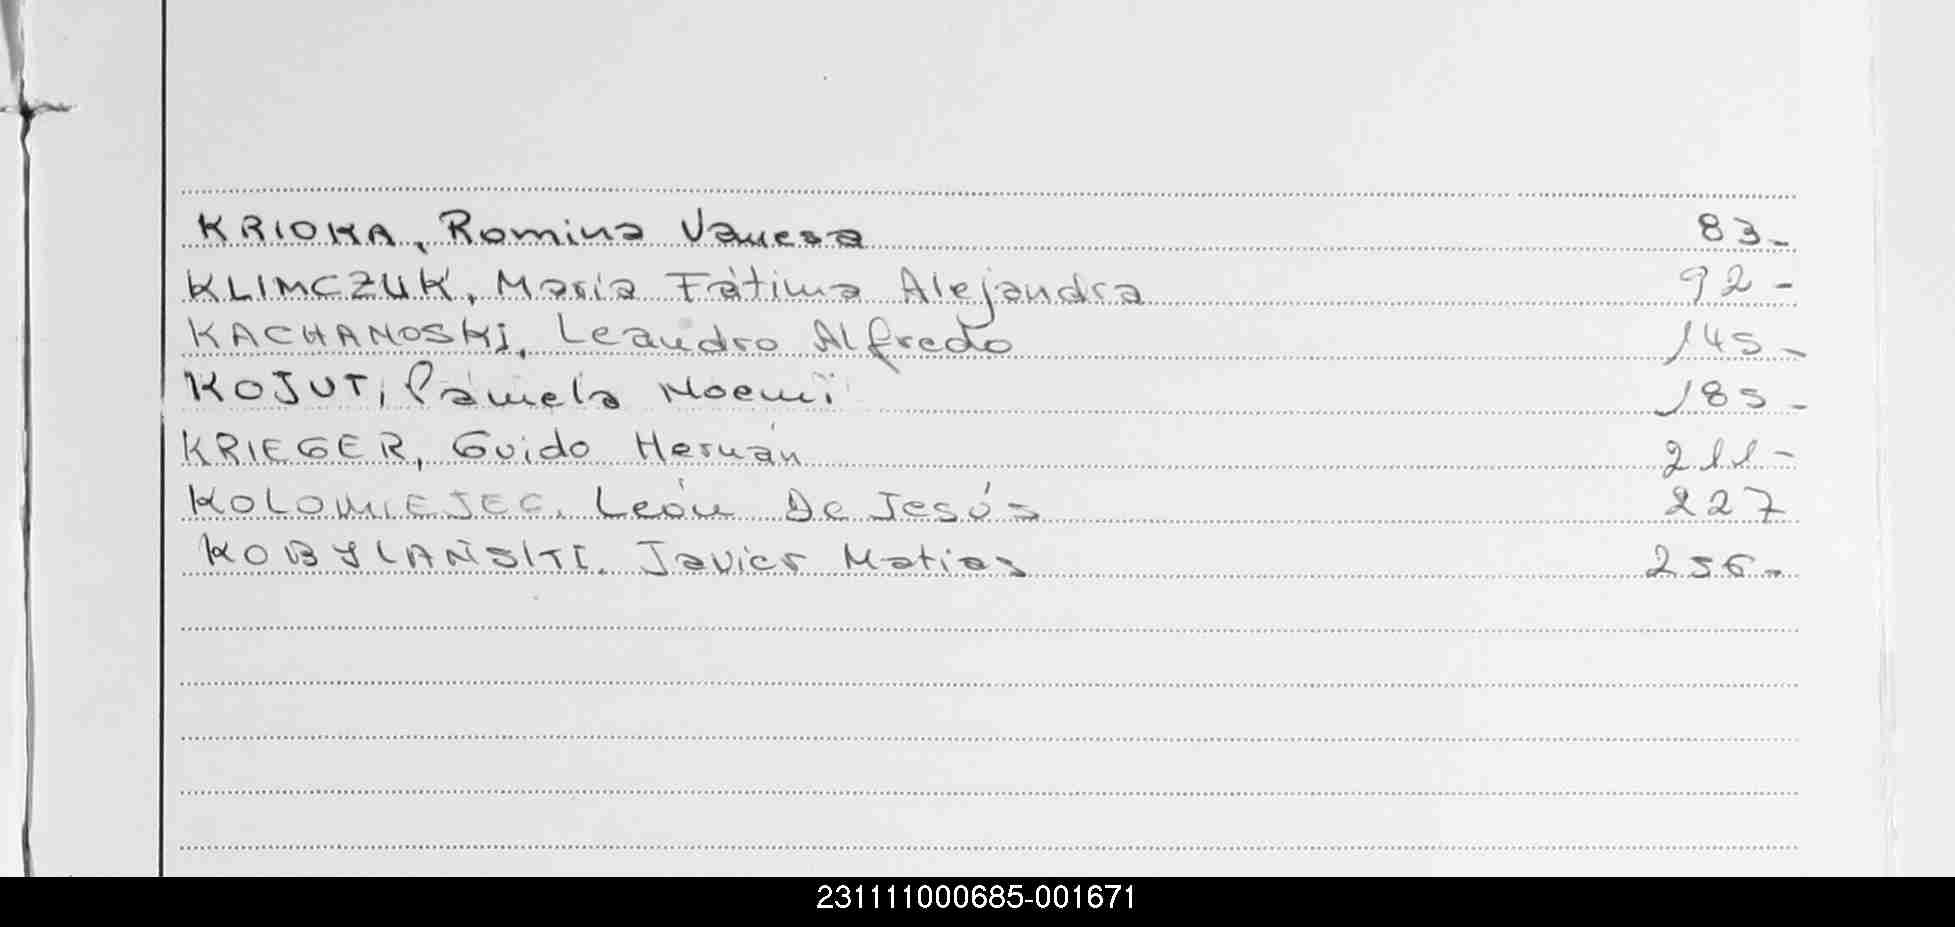 KRIOKA, Romina Vanesa 83-
KLIMCZUK, María Fátima Alejandra 92-
KACHANOSKI, Leandro Alfredo 145-
KOJUT, Pamela Noemí 185-
KRIEGER, Guido Hernán 211-
KOLOMIEJEC, León De Jesús 227
KOBYLAÑSKI, Javier Matias 256-
231111000685-001671